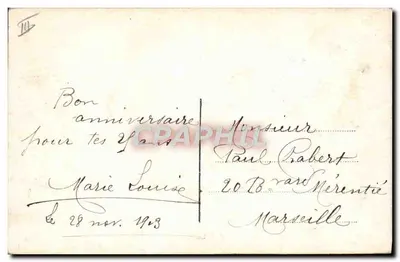 III
Bon
anniversaire
pour tes
Marie Louise
le 28 nov. 1903
CRAPHILL
Monsieur
Paul Rabert
20 Bvard Mérentié
Marseille